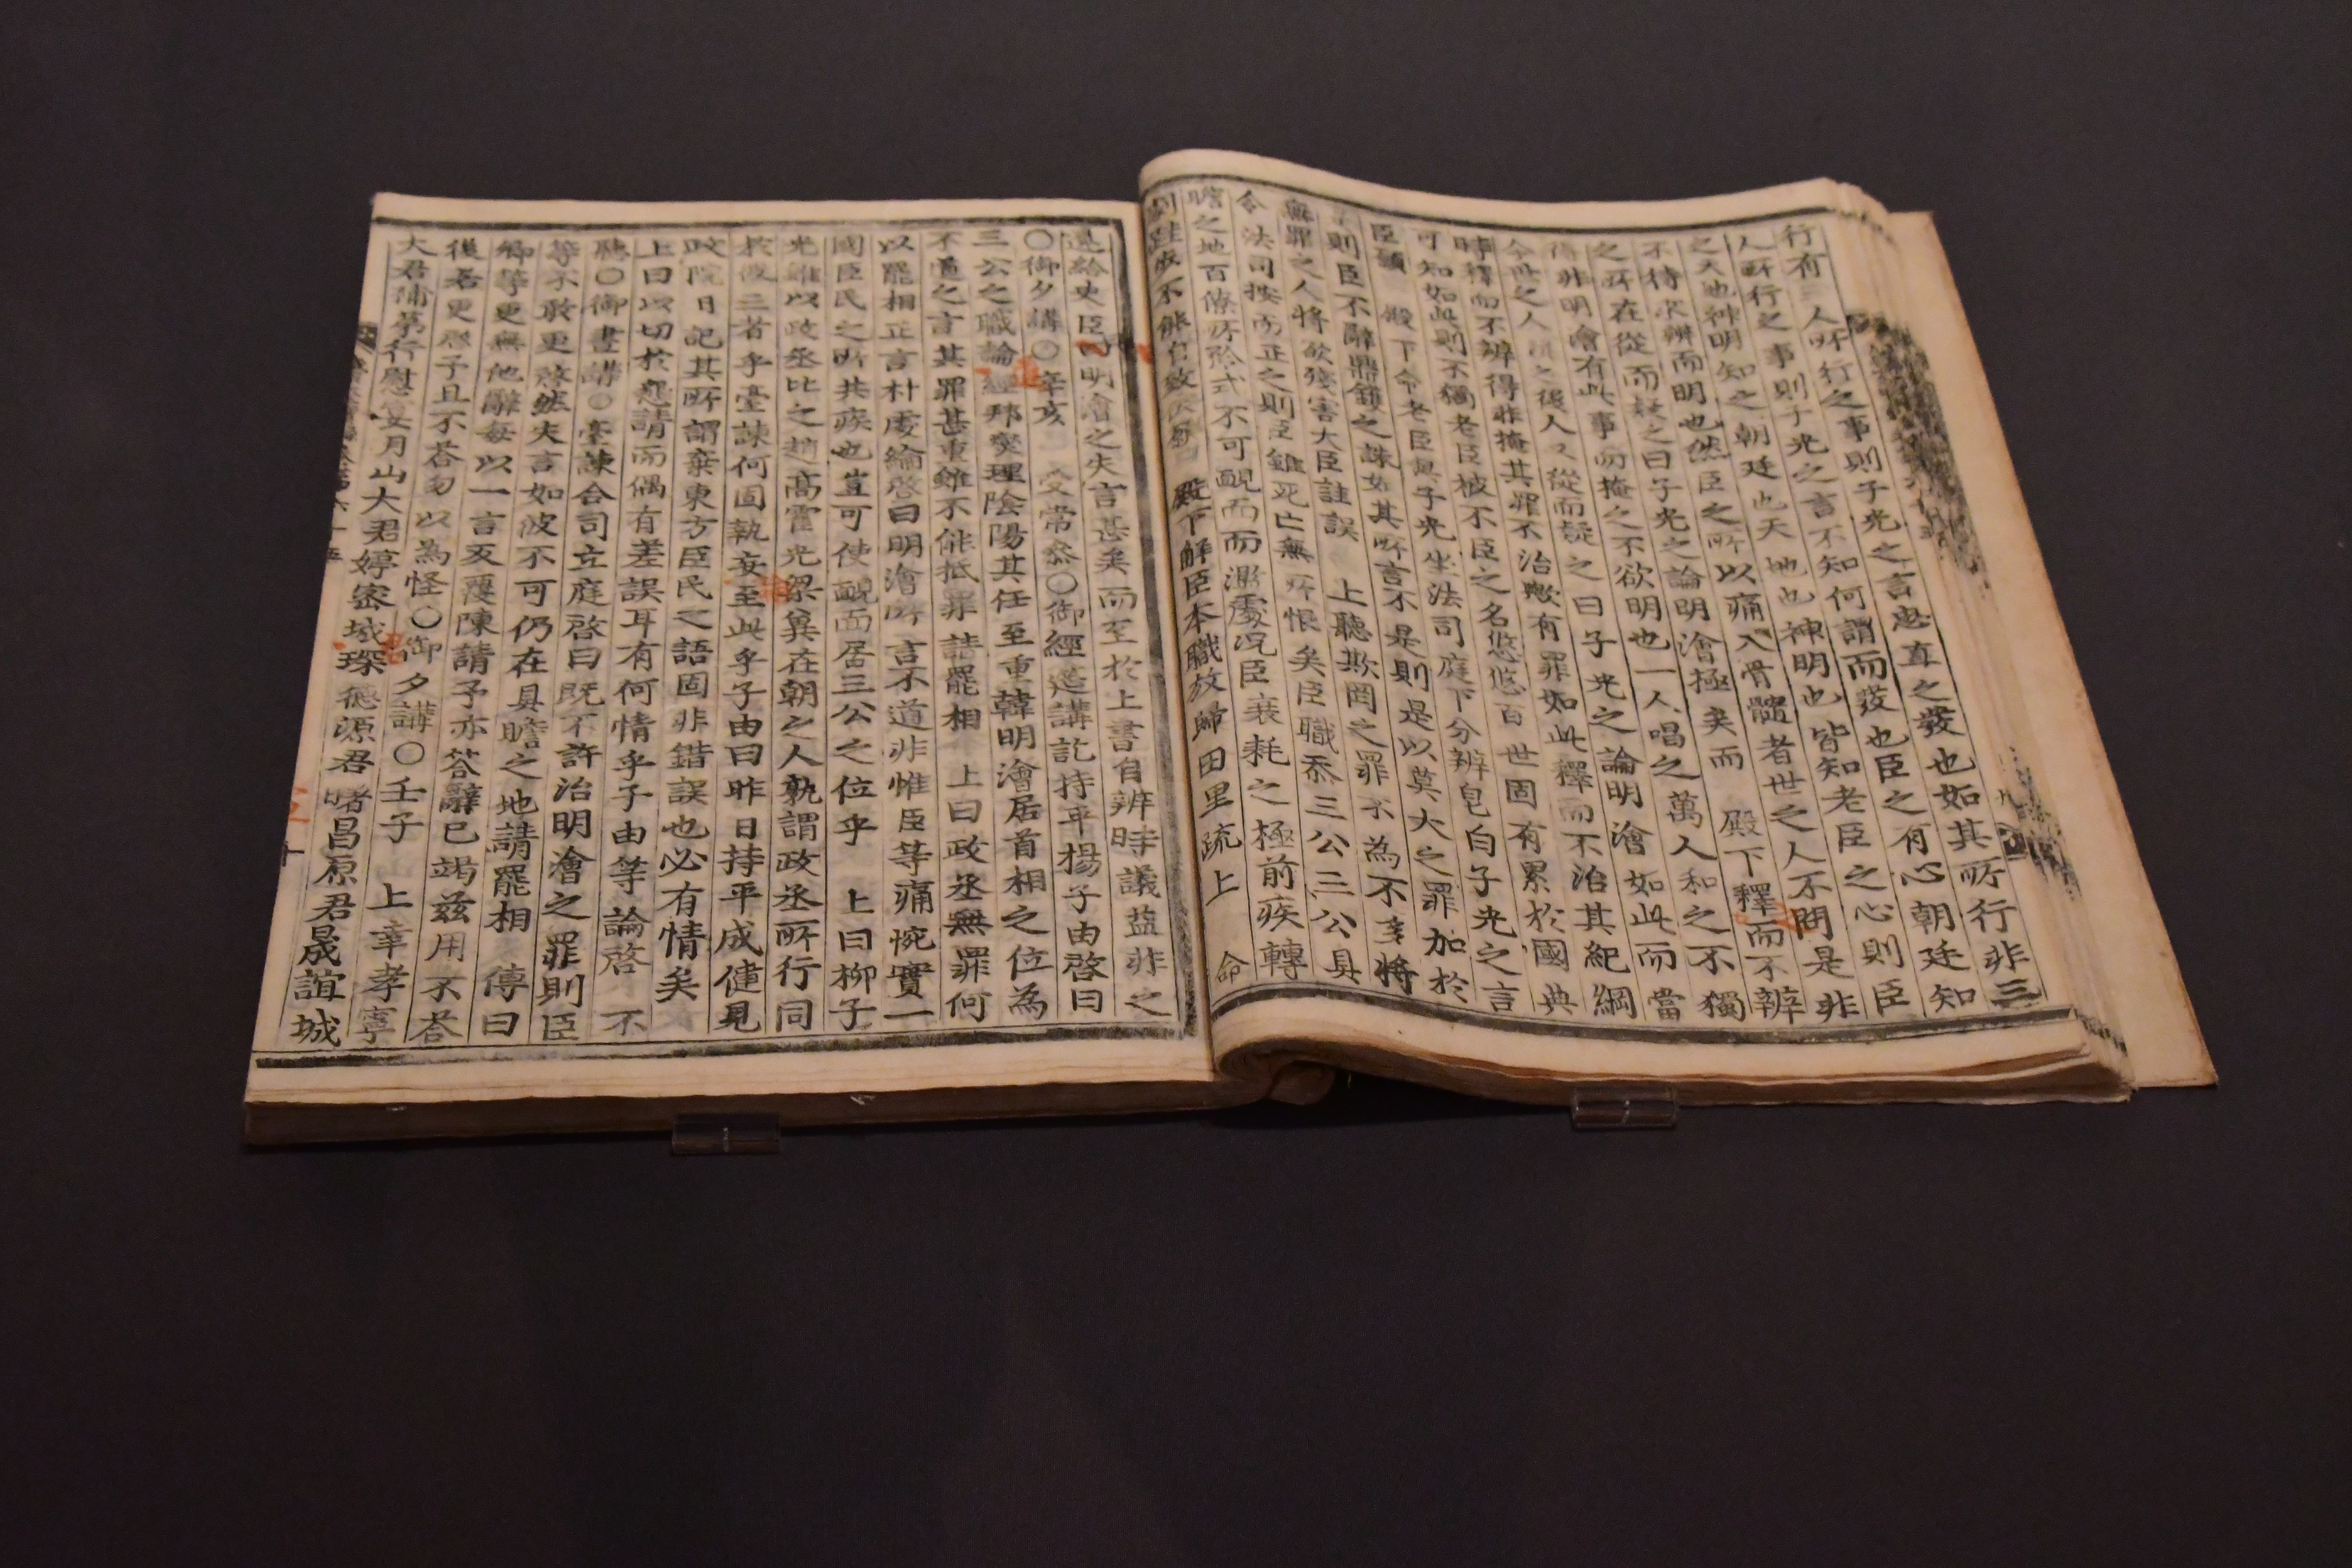 行有三人所行之事則子光之言忠直之發也如其所行非三
人所行之事則子光之言不知何謂而發也臣之有心朝廷知
之天地神明知之朝廷也天地也神明也皆知老臣之心則臣
不待求辨而明也然臣之所以痛入骨髓者世之人不問是非
之所在從而疑之曰子光之論明澮極矣而 殿下釋而不辨
得非明澮有此事而掩之不欲明也一人唱之萬人和之不獨
今世之人後之人又從而疑之曰子光之論明澮如此而當
時釋而不辨得非掩其罪不治歟有罪如此釋而不治其紀綱
可知如此則不獨老臣被不臣之名悠悠百世固有累於國典
臣願 殿下令老臣與子光坐法司庭下分辨皂白子光之言
是則臣不辭鼎鑊之誅如其所言不是則是以莫大之罪加於
無罪之人將欲殘害大臣註誤 上聽欺罔之罪亦為不多將
令法司按而正之則臣雖死亡無所恨矣臣職忝三公三公具
瞻之地百僚所矜式不可靦面而濫處況臣衰耗之極前疾轉
劇 不能自 殿下解臣本職放歸田里疏上 命
還給史臣曰明澮之失言甚矣而至於上書自辨時議益非之
○御夕講○辛亥 受常參○御經筵講訖持平楊子由啓曰
三公之職論經邦燮理陰陽其任至重韓明澮居首相之位為
不道之言其罪甚重雖不能抵罪請罷相 上曰政丞無罪何
以罷相正言朴處綸啓曰明澮所言不道非惟臣等痛惋實一
國臣民之所共疾也豈可使靦面居三公之位乎 上曰柳子
光雖以政丞比之趙高霍光梁冀在朝之人孰謂政丞所行同
於彼三者乎臺諫何固執妄至此乎子由曰昨日持平成健見
政院日記其所謂棄東方臣民之語固非錯誤也必有情矣
上曰以切於懇請而偶有差誤耳有何情乎子由等論啓 不
聽○御晝講○臺諫合司立庭啓曰既不許治明澮之罪則臣
等不敢更啓然失言如彼不可仍在具瞻之地請罷相 傳曰
卿等更無他辭每以一言反覆陳請予亦答辭已竭茲用不答
後若更啓予且不答勿以為怪○御夕講○壬子 上幸孝寧
大君𥙷第行慰宴月山大君婷密城君琛德源君曙昌原君晟誼城